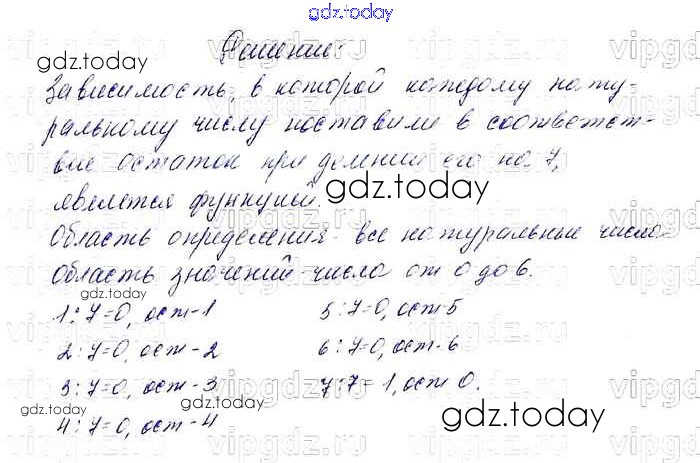 gdz.today
Решение:
Зависимость, в которой каждому нату-
ральному числу поставили в соответст-
вие остаток при делении его на 7,
является функцией.
Область определения - все натуральные числа
область значений - числа от 0 до 6.
1:7=0, ост-1
5:7=0, ост-5
2:7=0, ост-2
6:7=0, ост-6
3:7=0, ост-3
7:7=1, ост 0.
4:7=0, ост-4
gdz.today
gdz.today
gdz.today
gdz.today
gdz.today
vipgdz.ru